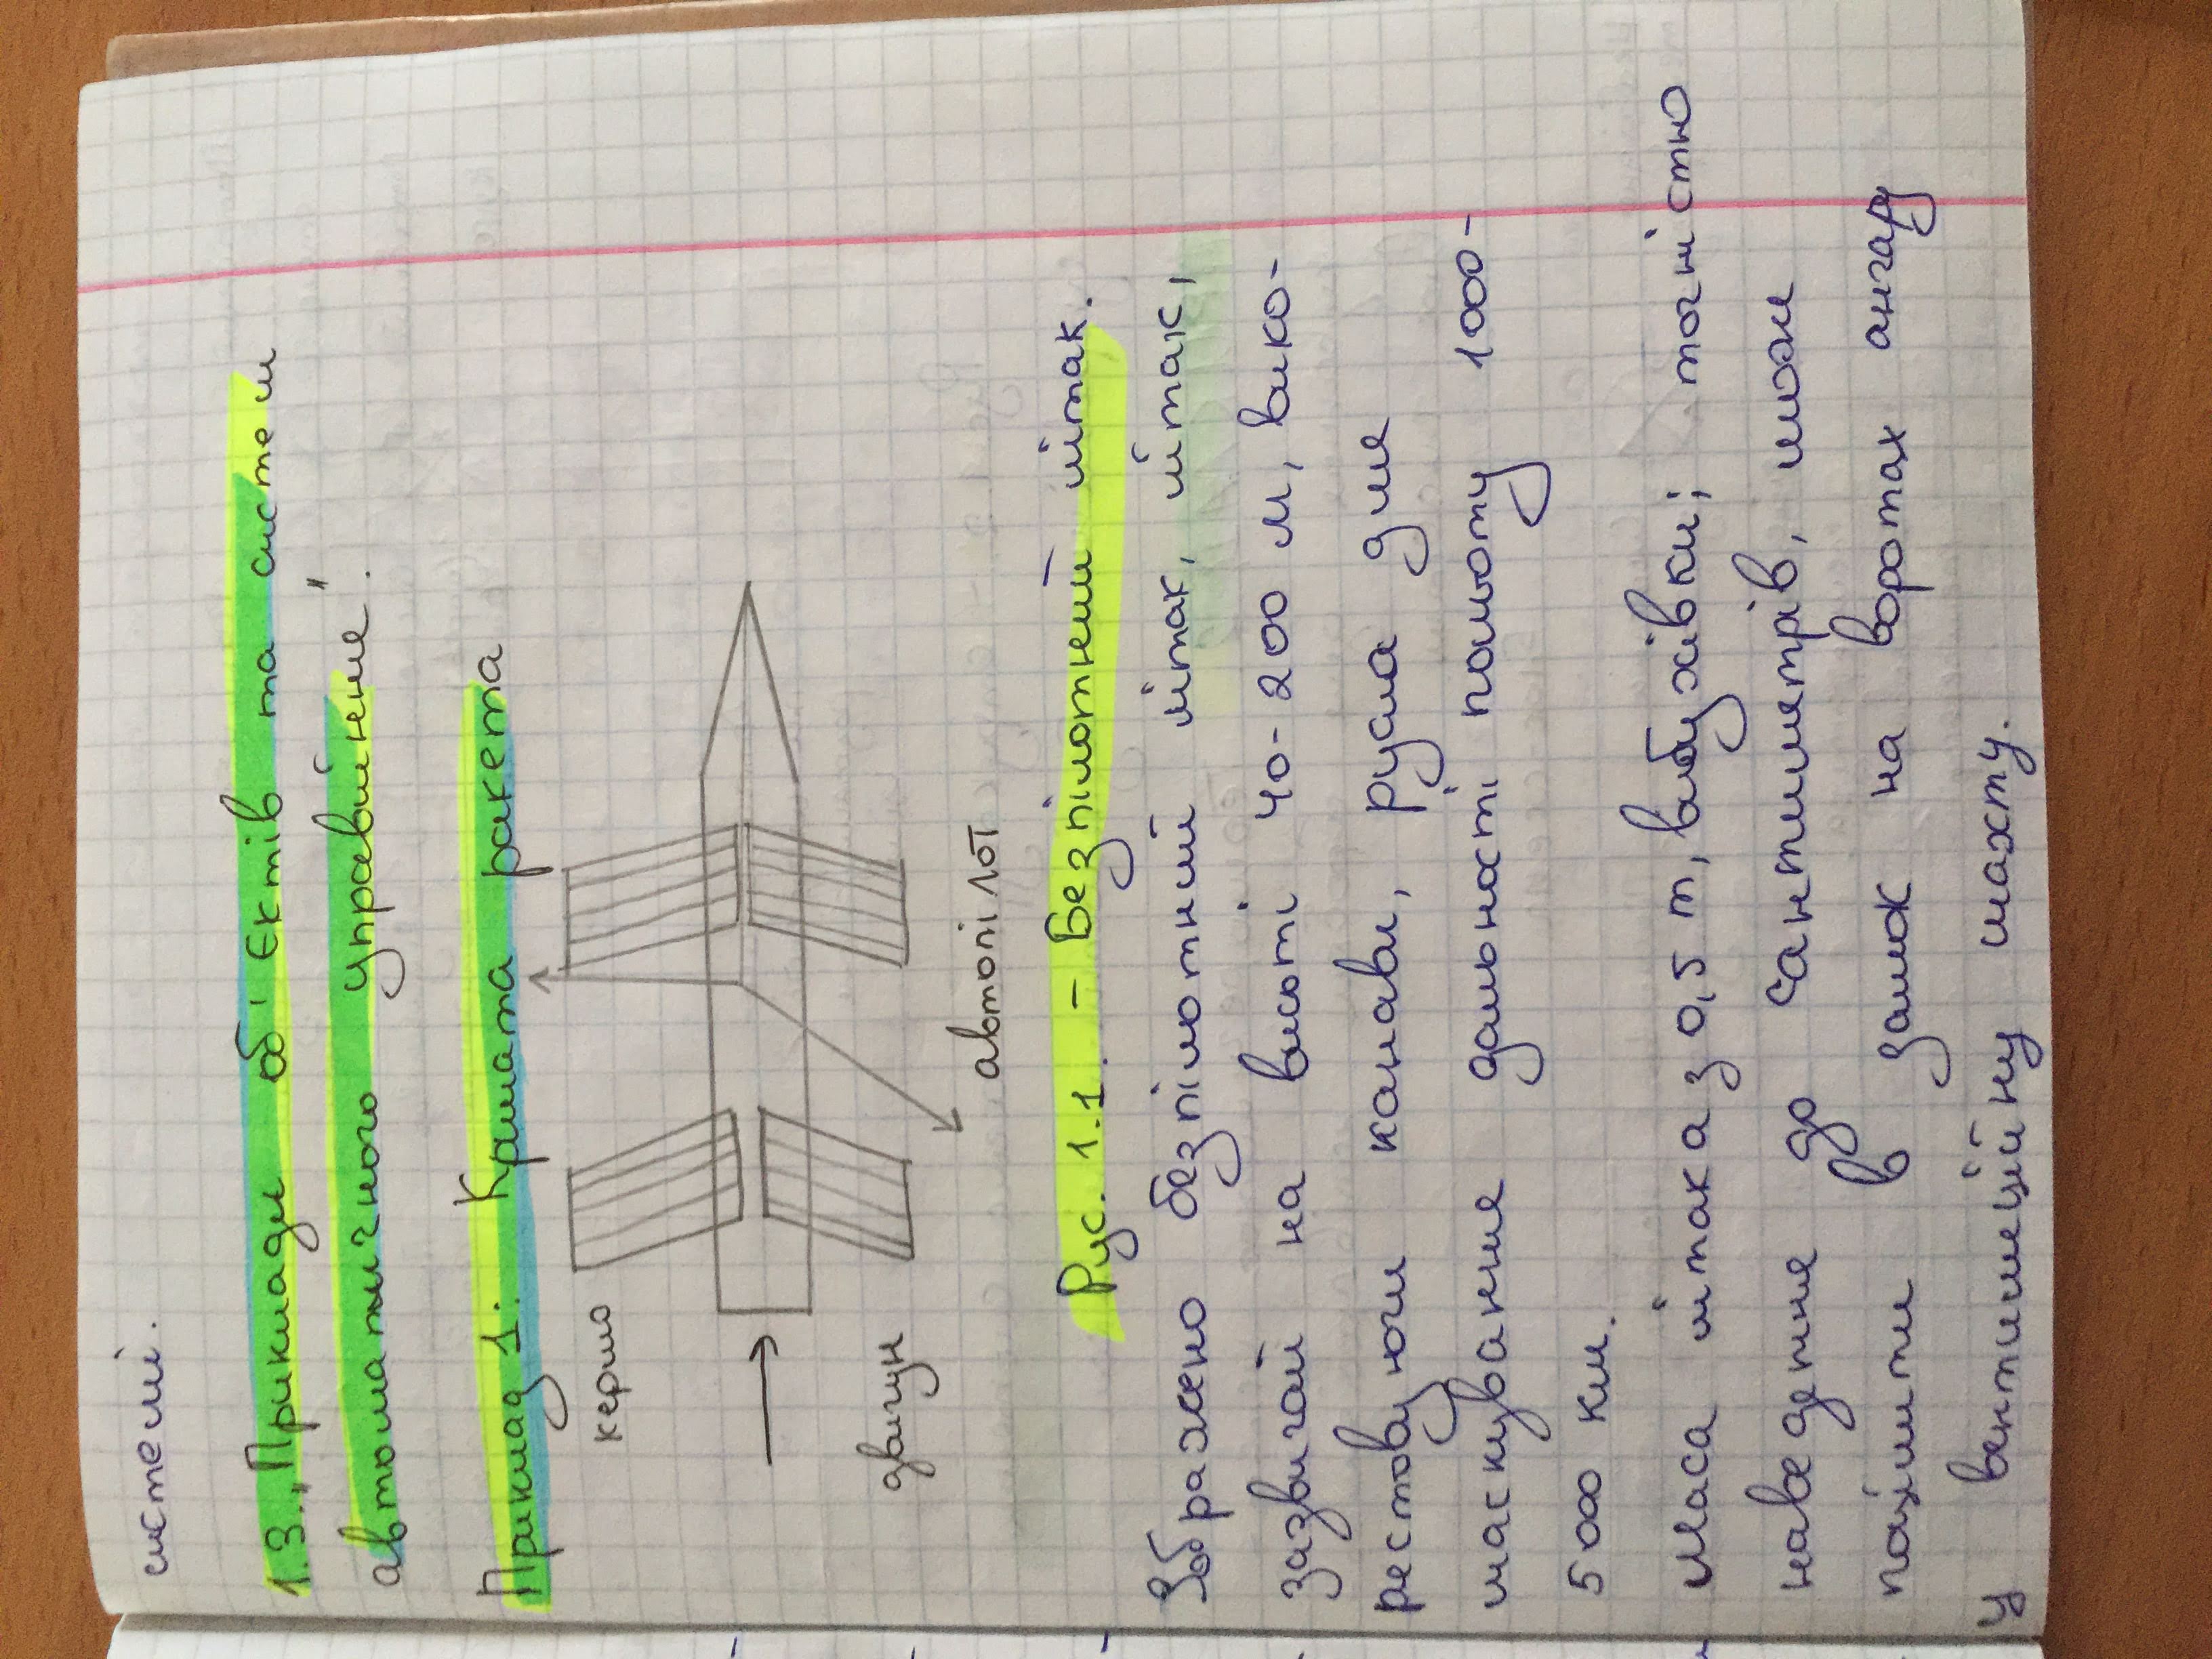 системі.
1.3. „Приклади об'єктів та систем
автоматичного управління".
Приклад 1: Крилата ракета
кермо
двигун
автопілот
Рус. 1.1. – Безпілотний літак.
Зображено безпілотний літак, літак,
зазвичай на висоті 40-200 м, вико-
рестовуючи канави, русла для
маскування дальності польоту 1000-
5000 км.
Маса літака з 0,5 т, вибухівки; точністю
наведення до сантиметрів, може
поцілити в замок на воротах ангару
у вентиляційну шахту.